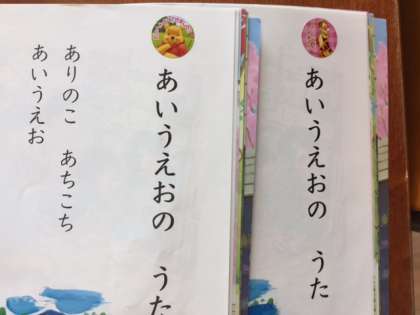 あいうえおの うた
あいうえおの うた
ありのこ あちこち
あいうえお